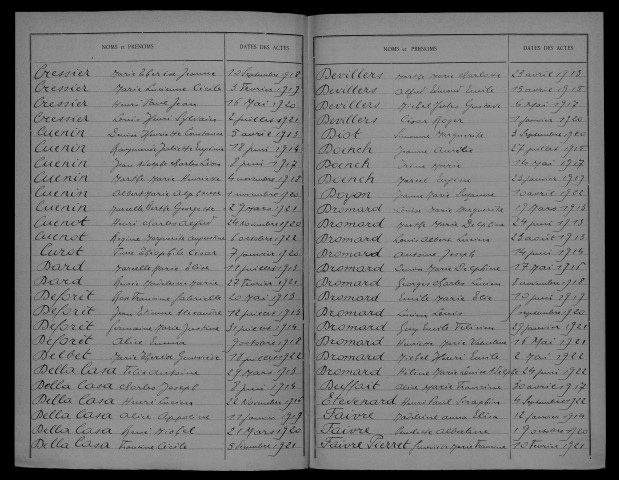 NOMS et PRÉNOMS DATES DES ACTES
Cressier Marie Thérèse Jeanne 12 Septembre 1918
Cressier Marie Lucienne Cécile 3 Février 1919
Cressier Henri Jean 16 Mai 1920
Cressier Louis Henri Sylvain 2 juillet 1921
Cuenin Henriette Constance 5 avril 1913
Cuenin Raymonde Juliette Eugénie 18 juin 1914
Cuenin Jean Charles Léon 8 juin 1917
Cuenin Marthe Marie Henriette 4 novembre 1918
Cuenin Albert Marie Alphonse 1 novembre 1920
Cuenin Marcelle Berthe Georgette 29 mars 1921
Cuenot Henri Charles Alfred 24 novembre 1920
Cuenot Régine Marguerite 6 octobre 1922
Curot César 7 janvier 1920
Dard Marcelle Marie Elise 11 juillet 1913
Dard Madeleine Marie 27 février 1921
Deforêt Rose Francine Gabrielle 20 mai 1913
Deforêt Jean Etienne Alexandre 12 juillet 1913
Deforêt Germaine Marie Justine 31 juillet 1914
Deforêt Alice Emma 9 octobre 1918
Delbet Marie Thérèse Geneviève 18 juillet 1922
Della Casa Félix Antoine 29 mars 1913
Della Casa Charles Joseph 8 juin 1914
Della Casa Henri Lucien 26 novembre 1915
Della Casa Alice Appoline 11 janvier 1919
Della Casa René Michel 21 Mars 1920
Della Casa Francine Cécile 1921
NOMS et PRÉNOMS DATES DES ACTES
Devillers Marthe Marie Charlotte 23 avril 1913
Devillers Alfred Edmond Emile 15 avril 1915
Devillers Michel Jules Gustave 4 Mai 1917
Devillers César Roger 1 janvier 1920
Diot Suzanne Marguerite 3 Septembre 1920
Doench Jeanne Amélie 27 juillet 1915
Doench Irène Marie 14 Mai 1917
Doench Marcel Eugène 23 janvier 1917
Doyon Jeanne Marie Suzanne 10 avril 1922
Dromard Louise Marie Marguerite 17 Mars 1913
Dromard Marthe Marie Delphine 24 juin 1913
Dromard Louis Albert Lucien 23 août 1913
Dromard Antoine Joseph 14 juin 1914
Dromard Louise Marie Delphine 17 Mai 1916
Dromard Georges Charles Lucien 8 novembre 1918
Dromard Emile Marie Elie 10 juin 1919
Dromard Lucien Louis Septembre 1920
Dromard Guy Emile Félicien 29 janvier 1921
Dromard Henriette Marie 16 Mai 1921
Dromard Michel Henri Emile 2 Mai 1922
Dromard Hélène Marie 24 juin 1922
Duffait Alice Marie Francine 30 avril 1917
Etevenard Henri Paul Séraphin 4 Septembre 1922
Faivre Madeleine Anna Elisa 12 janvier 1914
Faivre Paulette Albertine 19 octobre 1920
Faivre Pierret Marie Francine 10 février 1921